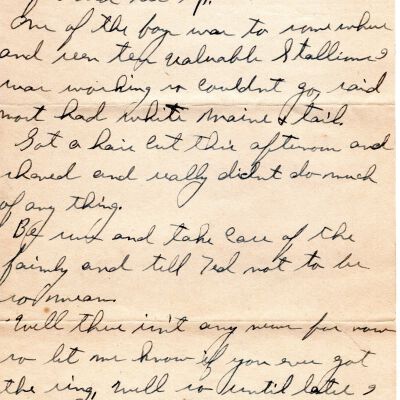 One of the boys was to some where
and seen ten valuable Stallions I
was working so couldnt go, said
most had white maine & tail.
Got a hair cut this afternoon and
shaved and really didnt do much
of any thing.
Be sure and take care of the
faimly and tell Ted not to be
so mean.
Well there isn't any news for now
so let me know if you ever got
the ring, will so until later I